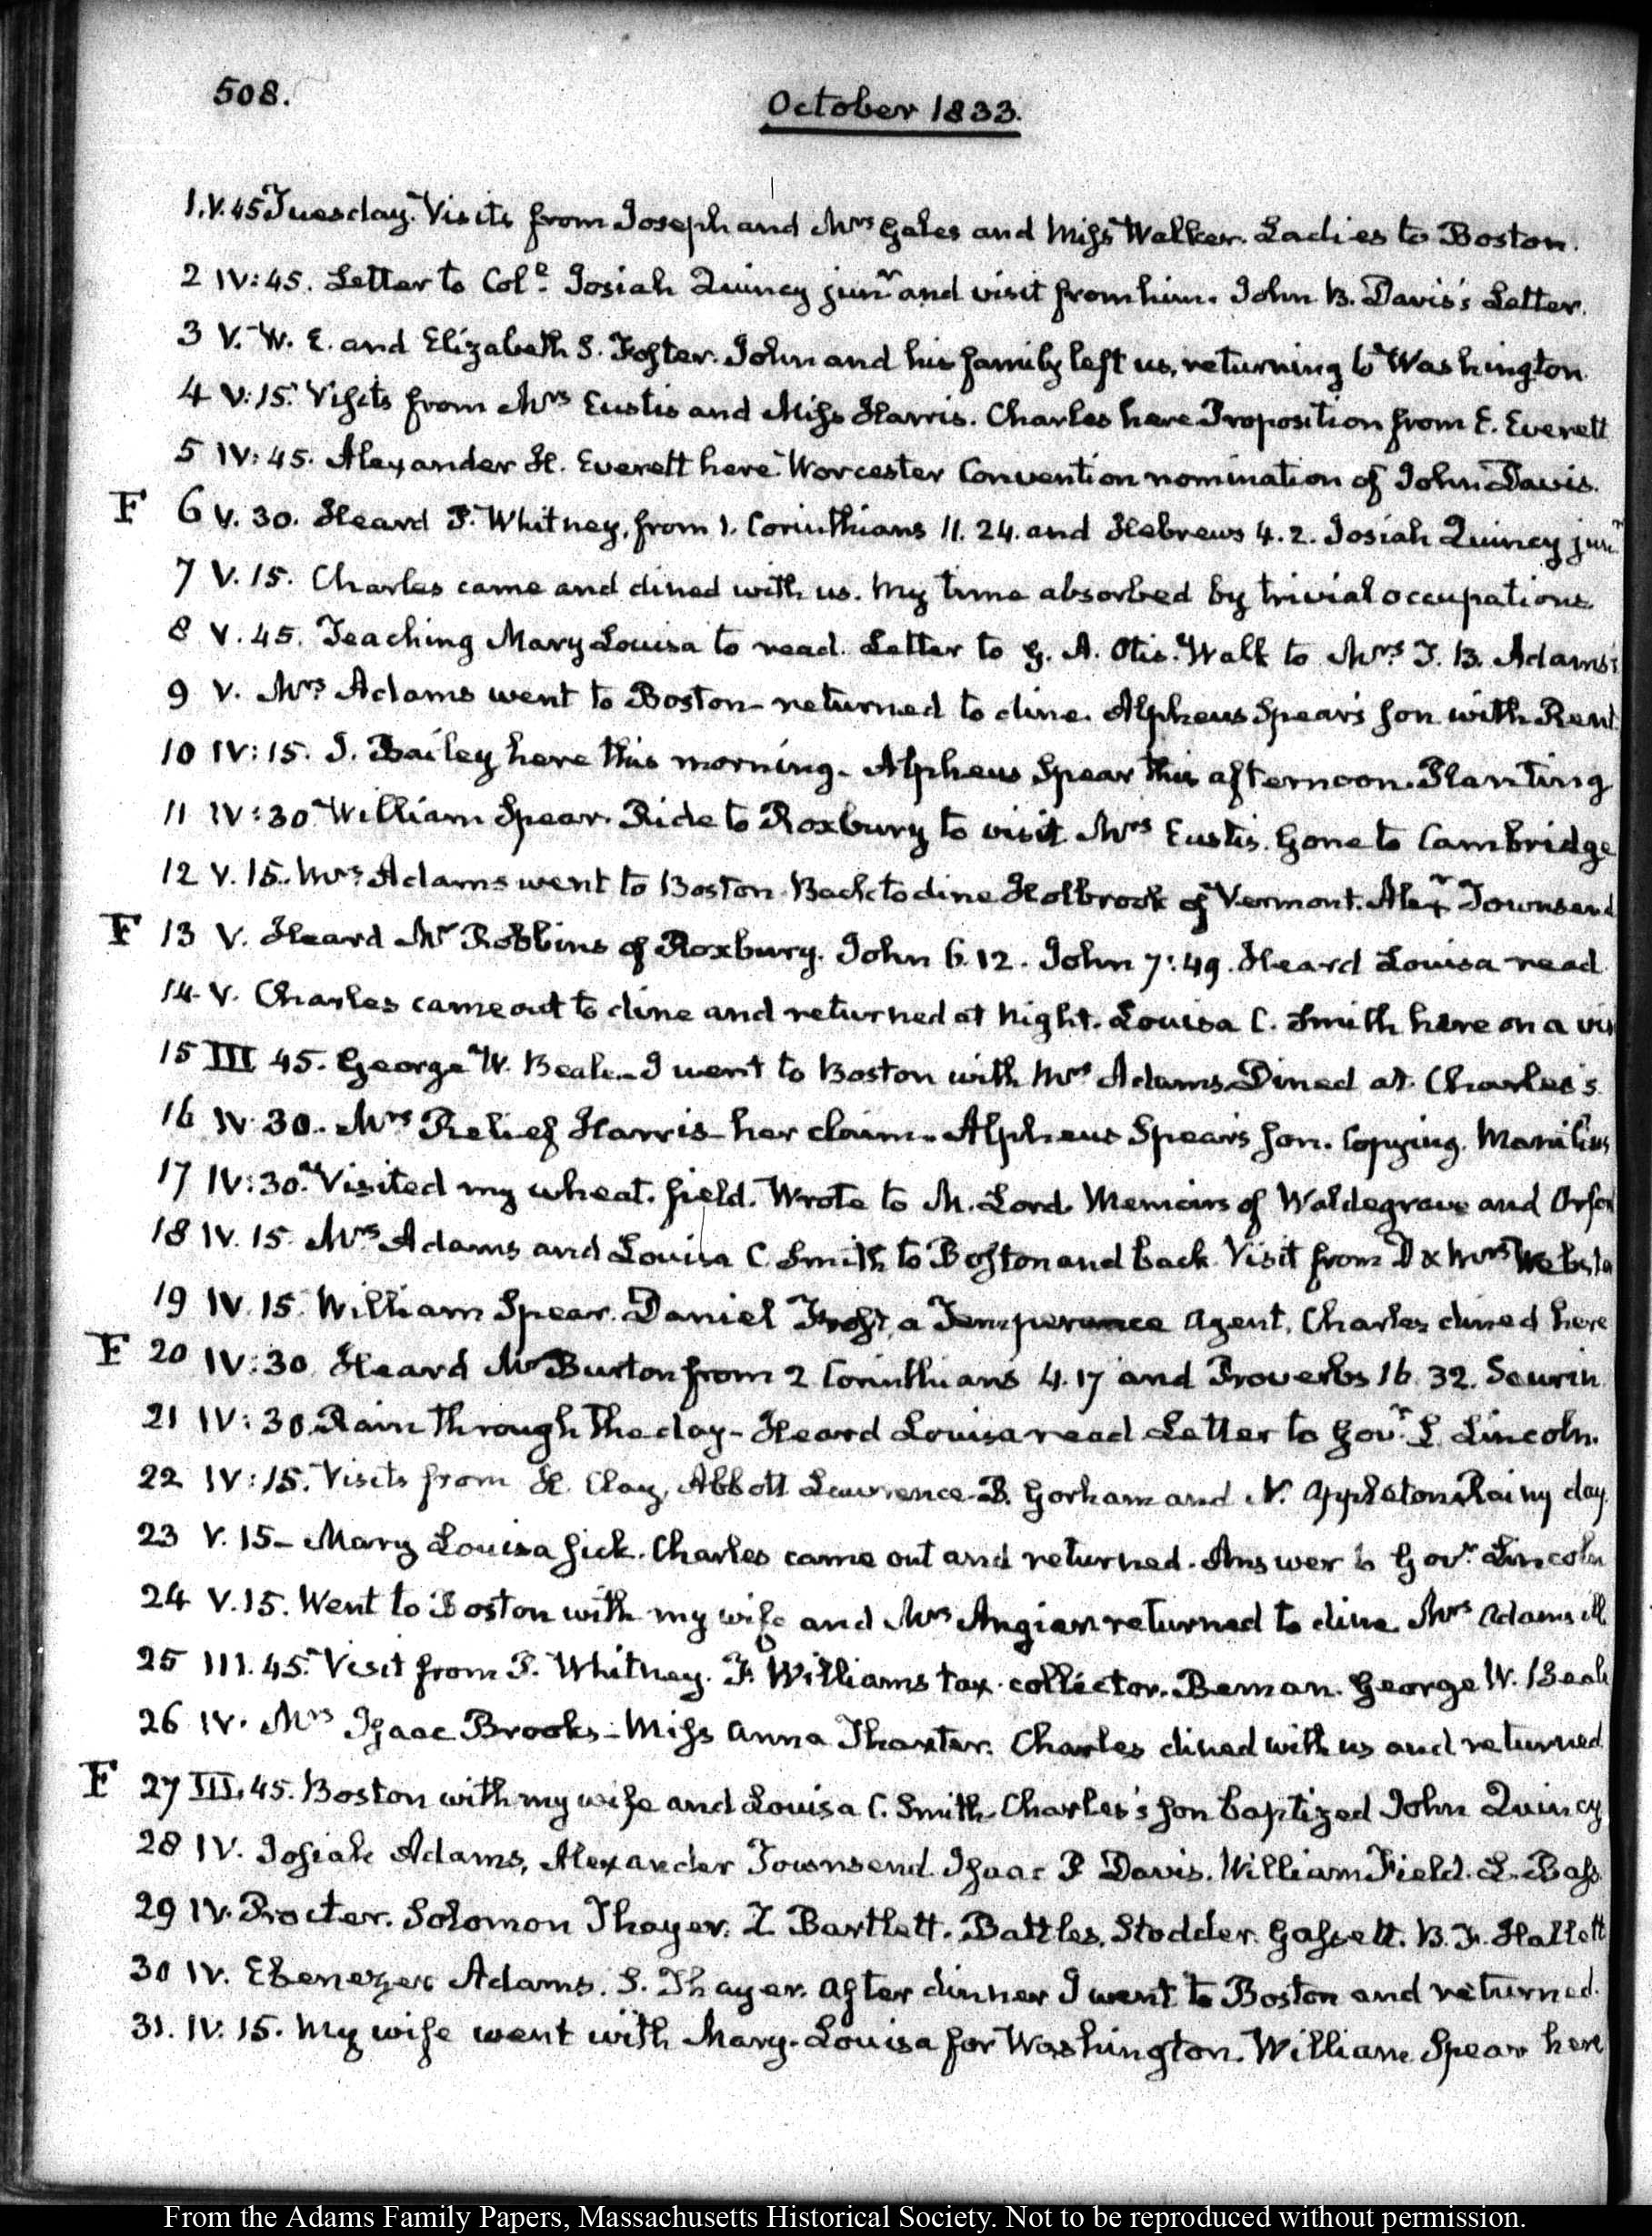 508.
October 1833.
1. V. 45 Tuesday. Visits from Joseph and Mrs Gales and Miss Walker. Ladies to Boston.
2 IV: 45. Letter to Col. Josiah Quincy junr and visit from him. John B. Davis's Letter.
3 V. W. E. and Elizabeth S. Foster. John and his family left us, returning to Washington.
4 V: 15. Visits from Mrs Eustis and Miss Harris. Charles here Proposition from E. Everett
5 IV: 45. Alexander H. Everett here. Worcester Convention nomination of John Davis.
F 6 V. 30. Heard P. Whitney, from 1. Corinthians 11. 24. and Hebrews 4. 2. Josiah Quincy junr
7 V. 15. Charles came and dined with us. My time absorbed by trivial occupations.
8 V. 45. Teaching Mary Louisa to read. Letter to G. A. Otis. Walk to Mrs T. B. Adams's
9 V. Mrs Adams went to Boston - returned to dine. Alpheus Spear's son with Rent
10 IV: 15. J. Bailey here this morning - Alpheus Spear this afternoon. Planting
11 IV: 30 William Spear. Ride to Roxbury to visit Mrs Eustis. Gone to Cambridge
12 V. 15. Mrs Adams went to Boston. Back to dine Holbrook of Vermont. Alexr Townsend
F 13 V. Heard Mr Robbins of Roxbury. John 6. 12. John 7: 49. Heard Louisa read.
14 V. Charles came out to dine and returned at Night. Louisa C. Smith here on a
15 III 45. George W. Beale. I went to Boston with Mrs Adams. Dined at Charles's.
16 IV 30. Mrs Relief Harris - her claim. Alpheus Spear's son. Copying. Manilius
17 IV: 30. Visited my wheat field. Wrote to M. Lord. Memoirs of Waldegrave and
18 IV. 15. Mrs Adams and Louisa C Smith to Boston and back. Visit from D & Mrs Webster
19 IV. 15. William Spear. Daniel Frost, a Temperance Agent. Charles dined here
F 20 IV: 30. Heard Mr Burton from 2 Corinthians 4. 17 and Proverbs 16. 32. Saurin
21 IV: 30. Rain through the day - Heard Louisa read Letter to Govr L Lincoln.
22 IV: 15. Visits from H. Clay, Abbott Lawrence. B. Gorham and N. Appleton. Rainy day.
23 V. 15 - Mary Louisa sick. Charles came out and returned. Answer to Govr Lincoln
24 V. 15. Went to Boston with my wife and Mrs Angier returned to dine. Mrs Adams ill
25 III. 45. Visit from P. Whitney. F. Williams tax collector. Beman. George W. Beale
26 IV. Mrs Isaac Brooks - Miss Anna Thaxter. Charles dined with us and returned
F 27 III. 45. Boston with my wife and Louisa C. Smith. Charles's son baptized John Quincy
28 IV. Josiah Adams, Alexander Townsend. Isaac P Davis. William Field. L. Bass
29 IV. Procter. Solomon Thayer. I. Bartlett. Battles. Stodder. Gassett. B. F. Hallett
30 IV. Ebenezer Adams. S. Thayer. After dinner I went to Boston and returned.
31. IV: 15. My wife went with Mary-Louisa for Washington. William Spear here
From the Adams Family Papers, Massachusetts Historical Society. Not to be reproduced without permission.